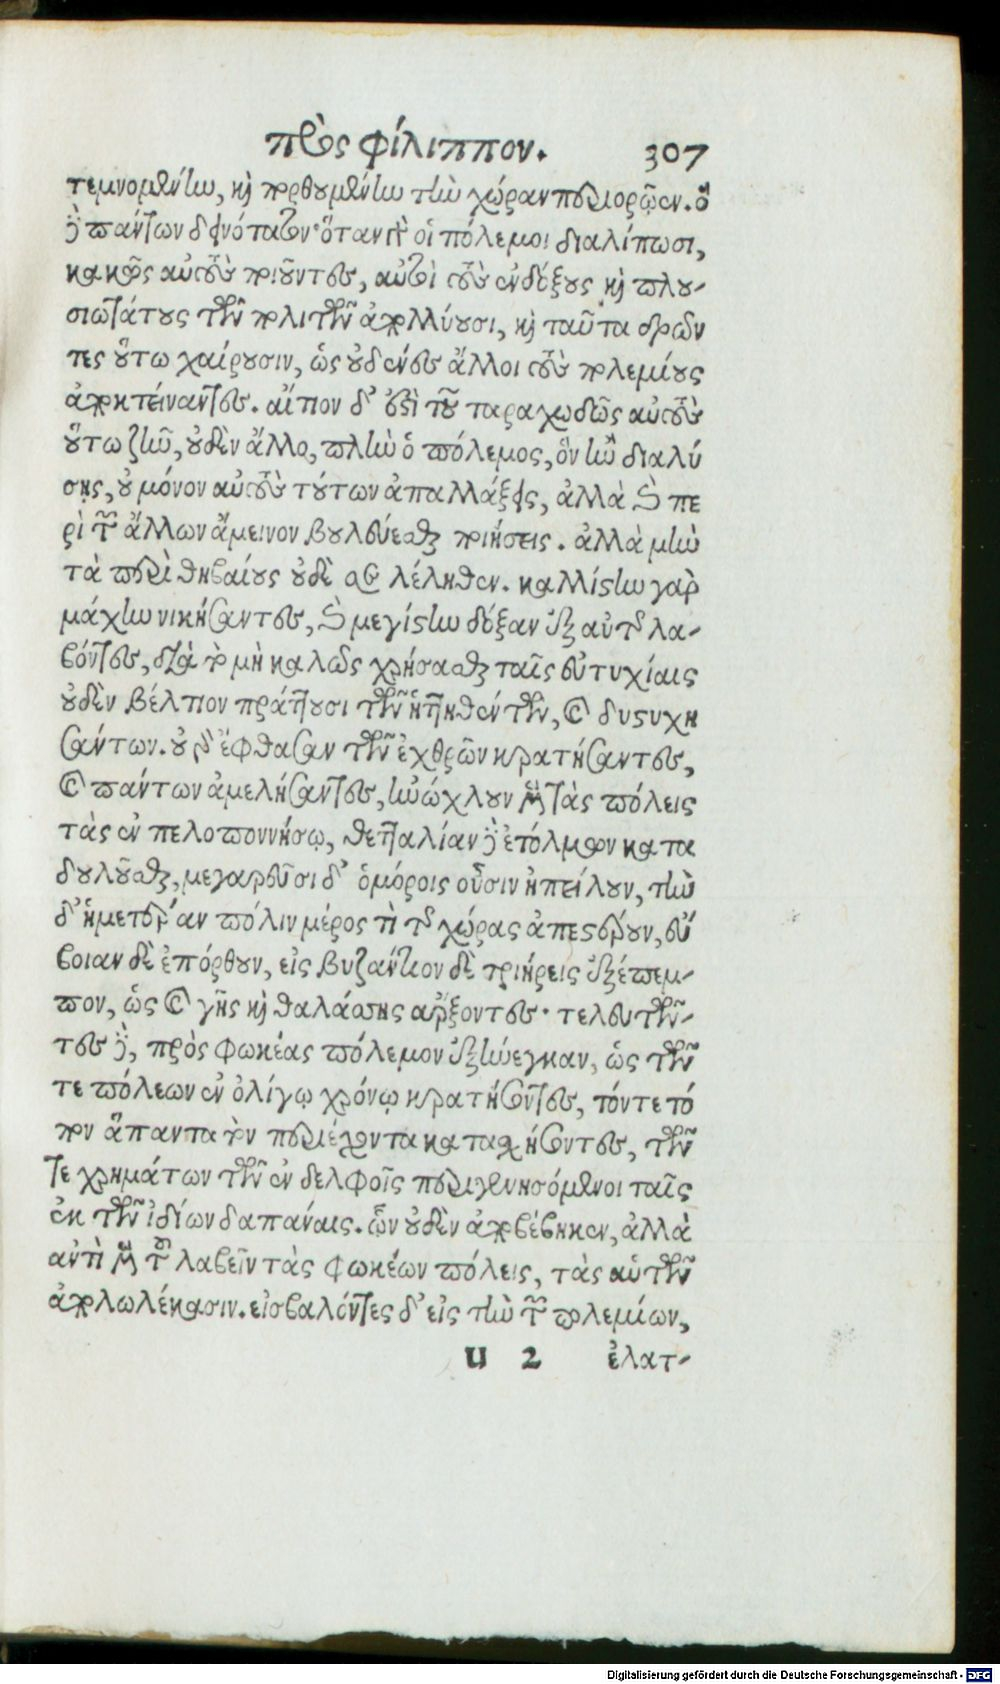 πρὸς φίλιππον. 307
τεμνομένην, καὶ πορθουμένην τὴν χώραν περιορῶσιν. ὃ
δὲ πάντων δεινότατον· ὅταν γὰρ οἱ πόλεμοι διαλίπωσι,
κακῶς αὐτοὺς ποιοῦντες, αὐτοὶ τοὺς ἐνδόξους καὶ πλου-
σιωτάτους τῶν πολιτῶν ἀπολλύουσι, καὶ ταῦτα δρῶν
τες οὕτω χαίρουσιν, ὡς οὐδένες ἄλλοι τοὺς πολεμίους
ἀποκτείναντες. αἴτιον δ' ἐστὶ τοῦ ταραχωδῶς αὐτοὺς
οὕτω ζῆν, οὐδὲν ἄλλο, πλὴν ὁ πόλεμος, ὃν ἢν διαλύ
σῃς, οὐ μόνον αὐτοὺς τούτων ἀπαλλάξεις, ἀλλὰ καὶ πε
ρὶ τῶν ἄλλων ἄμεινον βουλεύεσθαι ποιήσεις. ἀλλὰ μὴν
τὰ περὶ θηβαίους οὐδὲ σὲ λέληθεν. καλλίστην γὰρ
μάχην νικήσαντες, καὶ μεγίστην δόξαν ἐξ αὐτῆς λα-
βόντες, διὰ τὸ μὴ καλῶς χρήσασθαι ταῖς εὐτυχίαις
οὐδὲν βέλτιον πράττουσι τῶν ἡττηθέντων, καὶ δυστυχη
σάντων. οὐ γὰρ ἔφθασαν τῶν ἐχθρῶν κρατήσαντες,
καὶ πάντων ἀμελήσαντες, ἠνώχλουν μὲν τὰς πόλεις
τὰς ἐν πελοποννήσῳ, θετταλίαν δὲ ἐτόλμων κατα
δουλοῦσθαι, μεγαρεῦσι δ' ὁμόροις οὖσιν ἠπείλουν, τὴν
δ' ἡμετέραν πόλιν μέρος τὶ τῆς χώρας ἀπεστέρουν, εὔ
βοιαν δὲ ἐπόρθουν, εἰς βυζάντιον δὲ τριήρεις ἐξέπεμ-
πον, ὡς καὶ γῆς καὶ θαλάσσης ἄρξοντες· τελευτῶν-
τες δὲ, πρὸς φωκέας πόλεμον ἐξήνεγκαν, ὡς τῶν
τε πόλεων ἐν ὀλίγῳ χρόνῳ κρατήσοντες, τόν τε τό
πον ἅπαντα τὸν περιέχοντα κατασχήσοντες, τῶν
τε χρημάτων τῶν ἐν δελφοῖς περιγενησόμενοι ταῖς
ἐκ τῶν ἰδίων δαπάναις. ὧν οὐδὲν ἀποβέβηκεν, ἀλλὰ
ἀντὶ μὲν τοῦ λαβεῖν τὰς φωκέων πόλεις, τὰς αὑτῶν
ἀπολωλέκασιν. εἰσβαλόντες δ' εἰς τὴν τῶν πολεμίων,
u 2 ἐλατ-
Digitalisierung gefördert durch die Deutsche Forschungsgemeinschaft - DFG